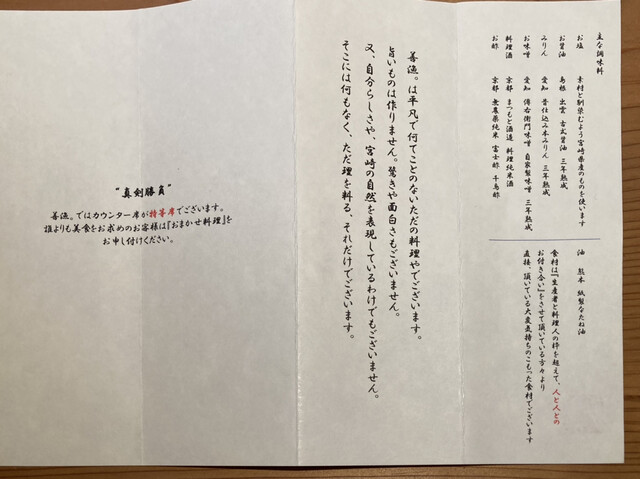 主な調味料
お塩 素材と馴染むよう宮崎県産のものを使います
お醤油 島根 出雲 古式醤油 三年熟成
みりん 愛知 昔仕込み本みりん 三年熟成
お味噌 愛知 傳右衛門味噌 自家製味噌 三年熟成
料理酒 京都 まつもと酒造 料理純米酒
お酢 京都 無農薬純米 富士酢 千鳥酢
油 熊本 紙製なたね油
食材は『生産者と料理人の枠を超えて、人と人との
お付き合い』をさせて頂いている方々より
直接、頂いている大変気持ちのこもった食材でございます
善漁。は平凡で何てことのないただの料理やでございます。
旨いものは作りません。驚きや面白さもございません。
又、自分らしさや、宮崎の自然を表現しているわけでもございません。
そこには何もなく、ただ理を料る、それだけでございます。
“真剣勝負”
善漁。ではカウンター席が特等席でございます。
誰よりも美食をお求めのお客様は『おまかせ料理』を
お申し付けください。